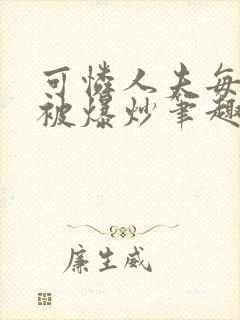 可怜人夫每
被爆炒笔趣
廉生威